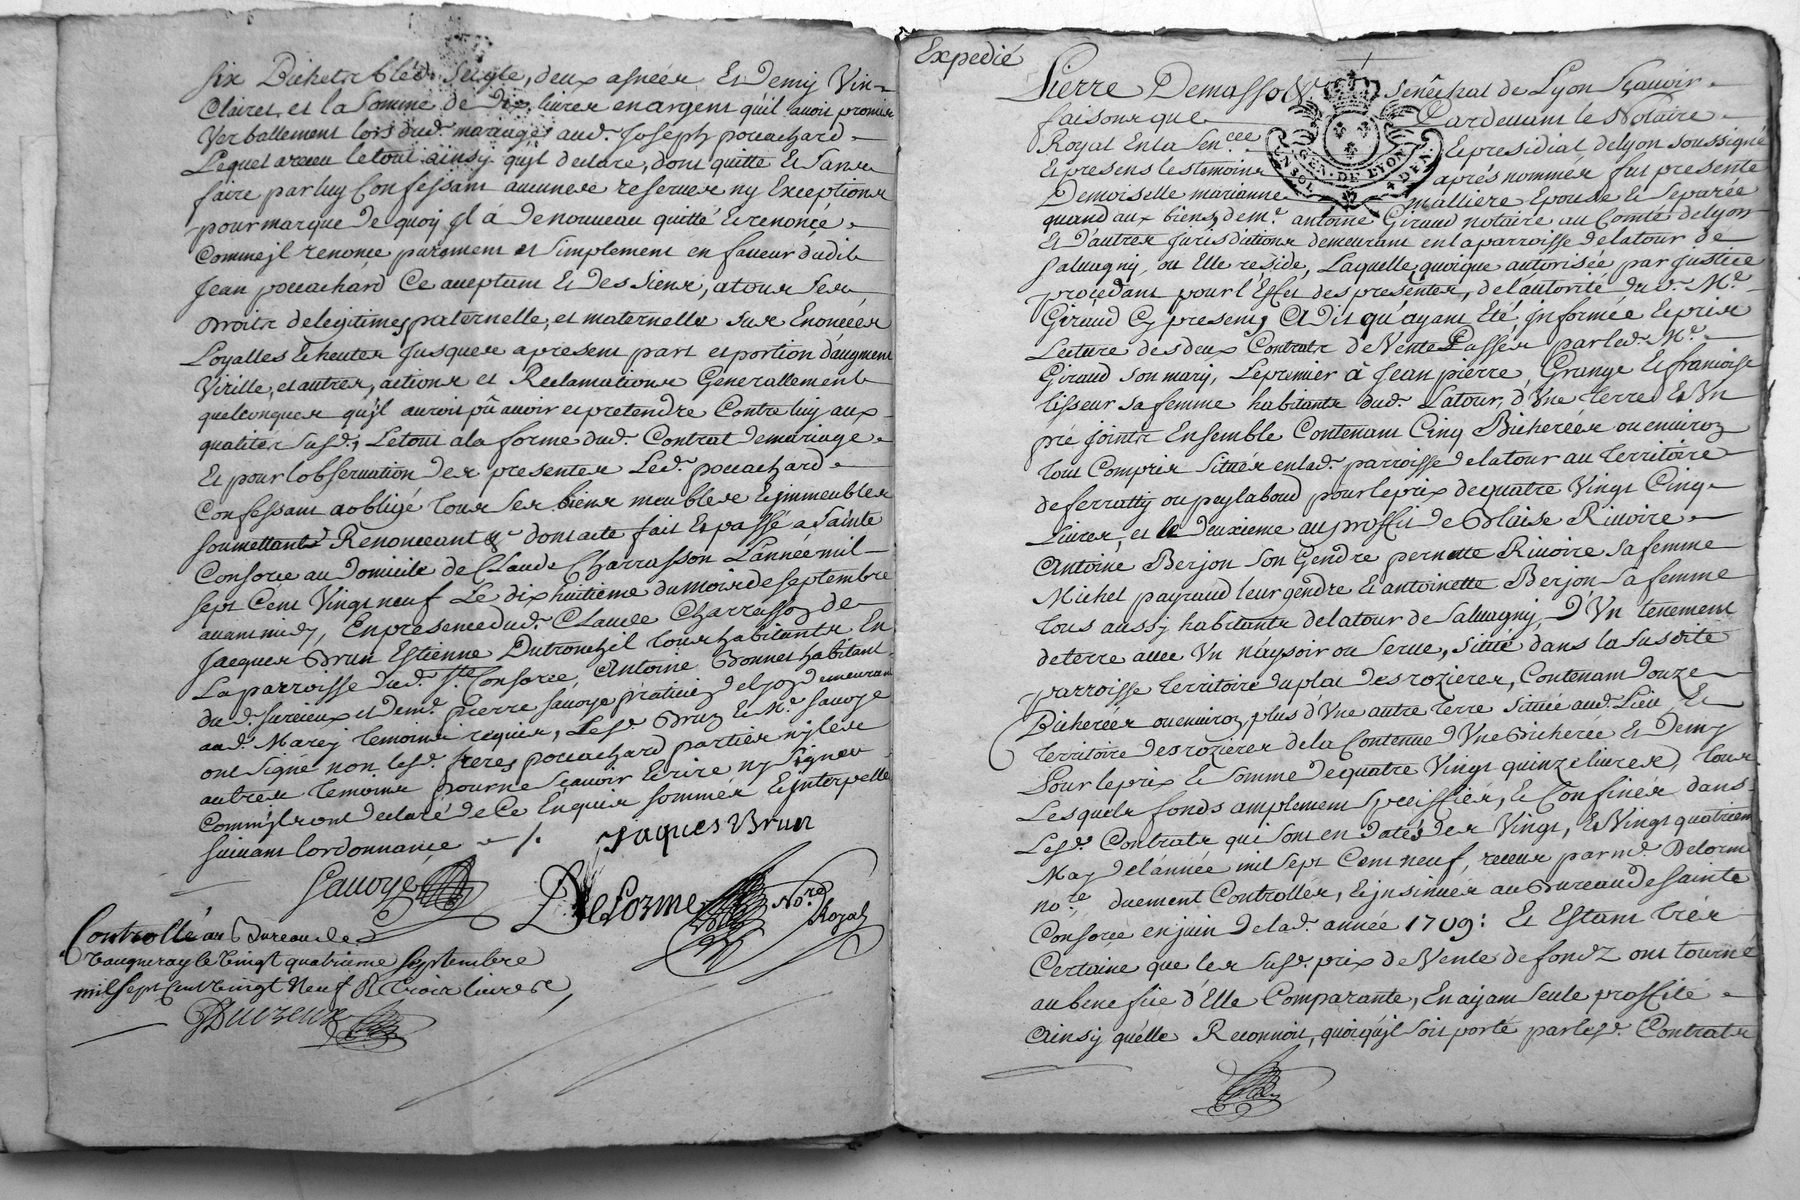 six Bichets bléd seigle, deux asnées Et Demy Vin
Clairet, et la Somme de dix livres en argent qu'il avoit promis
Verballement lors dud. mariage aud. Joseph pouachard
Lequel a receu le tout ainsy qu'il declare, dont quitte Et sans
faire par luy Confessant aucunes reserves ny Exceptions
pour marque de quoy Il á de nouveau quitté Et renoncé
Comme jl renonce purement et simplement en faveur dudit
Jean pouachard Ce aceptant Et des siens, a tous ses
Droits de legitimes paternelle, et maternelle sur
Loyalles Echeutes Jusques apresent part et portion d'augment
Virille, et autres, actions et Reclamations Generallement
quelconques qu'il auroit pû avoir et pretendre Contre luy aux
qualités susd. Le tout a la forme dud. Contrat de mariage
Et pour l'observation des presentes Led. pouachard
Confessant a obligé tous ses biens meubles Et immeubles
soumettant Renonceant &c dont acte fait Et passé a Sainte
Consorce au domicile de Claude Charrasson L'année mil
sept Cent Vingt neuf Le dix huitieme du mois de septembre
avant midy, En presence dud. Claude Charrasson de
Jacques Brun Estienne Dutronchil tous habitants En
La parroisse dud. Ste Consorce, Antoine Bonnet habitant
du d. et de me. pierre savoye praticien de lyon demeurant
aud. Marcy temoins requis, Lesd. Brun Et Me. Savoye
ont signé non lesd. freres pouachard parties ny les
autres temoins pour ne sçavoir Ecrire ny signer
Comm'ils ont declaré de Ce Enquis sommés Et interpellés
suivant l'ordonnance
Jaques Brun
Savoye
Delorme Nore. Royal
Controllé au Bureau de
Vaugneray le Vingt quatrieme Septembre
mil sept Cent Vingt Neuf R. Trois livres
Expedié
Pierre Demasso Senêchal de Lyon Sçavoir
faisons que Pardevant le Notaire
Royal En la Sen.cée Et presidial de lyon soussigné
Et presens les temoins aprés nommés fut presente
Demoiselle marianne malliere Epouse Et Separée
GEN. DE LYON
UN SOL 4 DEN.
quand aux biens de me. antoine Giraud notaire au Comté de lyon
Et d'autres Jurisdictions demeurant en la parroisse de la tour de
salvagny, ou Elle reside, Laquelle quoique autorisée par Justice
procedant pour l'Effet des presentes, de l'autorité dud. Me.
Giraud Cy present, A dit qu'ayant Eté Informée Et pris
Lecture des deux Contrats de Vente Passés par led. Me.
Giraud son mary, Le premier á Jean pierre Grange Et francoise
tisseur sa femme habitants dud. Latour, d'Une terre Et Un
pré joints Ensemble Contenant Cinq Bicherées ou environ
tout Compris situés en lad. parroisse de la tour au territoire
de ferratty ou peylaboud pour le prix de quatre Vingt Cinq
Livres, et le deuxieme au proffit de Blaise Rivoire
Antoine Berjon son Gendre pernette Rivoire sa femme
Michel payraud leur gendre Et antoinette Berjon sa femme
tous aussy habitants de la tour de salvagny, D'Un tenement
de terre avec Un ou serve, situé dans la susdite
parroisse territoire du plat des rozieres, Contenant douze
Bicherées ou environ, plus d'Une autre terre située aud. Lieu, Et
territoire des rozieres de la Contenue d'Une Bicherée Et Demy
Pour le prix Et somme de quatre Vingt quinze livres, tous
Lesquels fonds amplement speciffiés, Et Confinés dans
Lesd. Contrats qui sont en datés des Vingt, Et Vingt quatrieme
May de l'année mil sept Cent neuf, receus par me. Delorme
nore. duement Controllés, Et jnsinués au Bureau de Sainte
Consorce en juin de lad. année 1709: Et Estant très
Certaine que les susd. prix de Vente de fondz ont tourné
au benefice d'Elle Comparante, En ayant seule proffité
Ainsy quélle Reconnoit, quoiqu'jl soit porté par lesd. Contrats